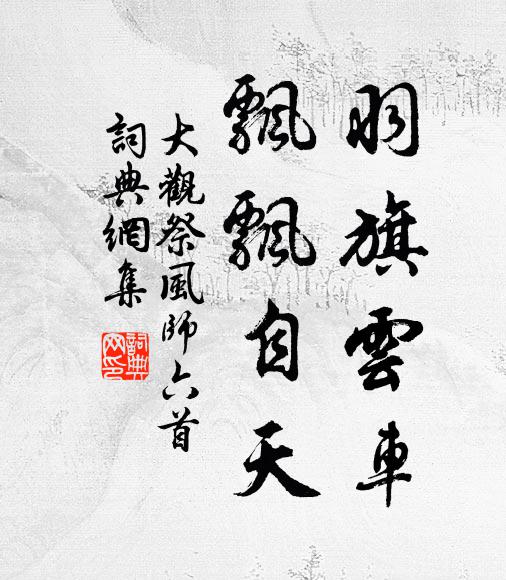 羽旗雲車
飄飄自天
大觀祭風師六首
詞典網集
詞典网印